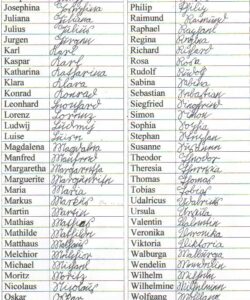 Josephina Josephina
Juliana Juliana
Julius Julius
Jurgen Jurgen
Karl Karl
Kaspar Karl
Katharina Katharina
Klara Klara
Konrad Konrad
Leonhard Leonhard
Lorenz Lorenz
Ludwij Ludwij
Luise Luise
Magdalena Magdalena
Manfred Manfred
Margaretha Margaretha
Marguerite Marguerite
Maria Maria
Markus Markus
Martin Martin
Mathias Mathias
Mathilde Mathilde
Matthaus Matthaus
Melchior Melchior
Michael Michael
Moritz Moritz
Nicolaus Nicolaus
Oskar Oskar
Philip Philip
Raimund Raimund
Raphael Raphael
Regina Regina
Richard Richard
Rosa Rosa
Rudolf Rudolf
Sabina Sabina
Sebastian Sebastian
Siegfried Siegfried
Simon Simon
Sophia Sophia
Stephan Stephan
Susanne Susanne
Theodor Theodor
Theresia Theresia
Thomas Thomas
Tobias Tobias
Udalricus Udalricus
Ursula Ursula
Valentin Valentin
Veronika Veronika
Viktoria Viktoria
Walburga Walburga
Wendelin Wendelin
Wilhelm Wilhelm
Wilhelmine Wilhelmine
Wolfgang Wolfgang